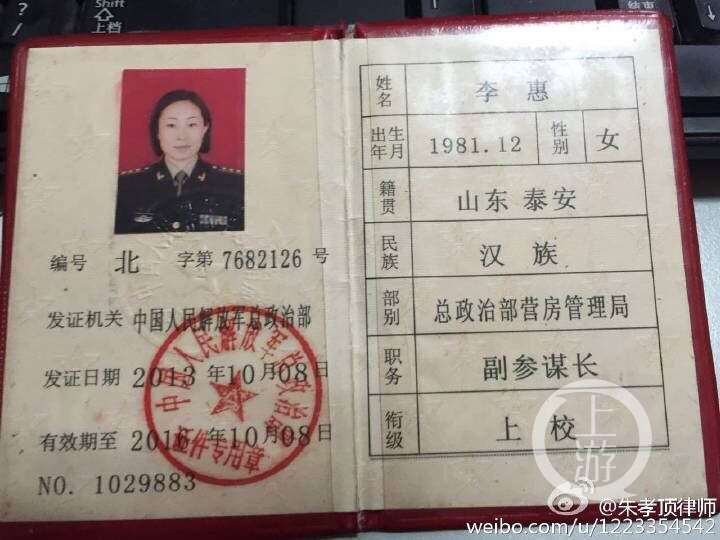 Shift
上档
?
/
结束
姓名 李惠
出生年月 1981.12 性别 女
籍贯 山东 泰安
民族 汉族
部别 总政治部营房管理局
职务 副参谋长
衔级 上校
编号 北 字第 7682126 号
发证机关 中国人民解放军总政治部
发证日期 2013 年 10 月 08 日
有效期至 2016 年 10 月 08 日
NO. 1029883
中国人民解放军总政治部
证件专用章
上游
@朱孝顶律师
weibo.com/u/1223354542